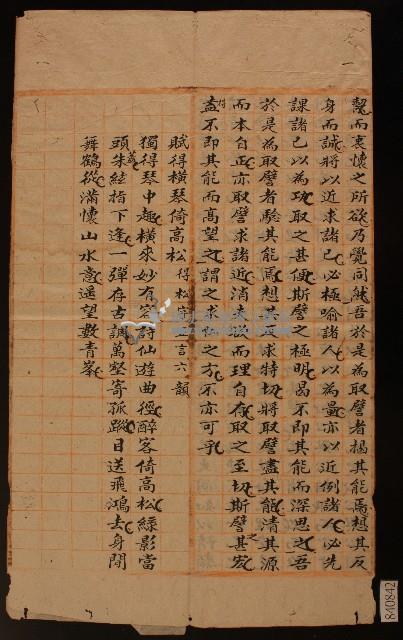 絜而衷懷之所欲乃覺同然吾於是為取譬者揭其能焉想其反
身而誠將以近求諸己必極喻諸人以為量亦以近例諸人必先
課諸己以為功取之甚便斯譬之極明曷不即其能而深思之吾
於是為取譬者驗其能焉想其反求特切將取譬盡其能清其源
而本自正亦取譬求諸近消欲而理自存取之至切斯譬甚宏
盍不即其能而高望之謂之求仁之方不亦可乎
賦得橫琴倚高松得松字五言六韻
獨得琴中趣橫來妙有容詩仙遊曲徑醉客倚高松綠影當
頭朱絃指下逢一彈存古調萬壑寄孤蹤目送飛鴻去身閒
舞鶴從滿懷山水意遙望數青峯
840842